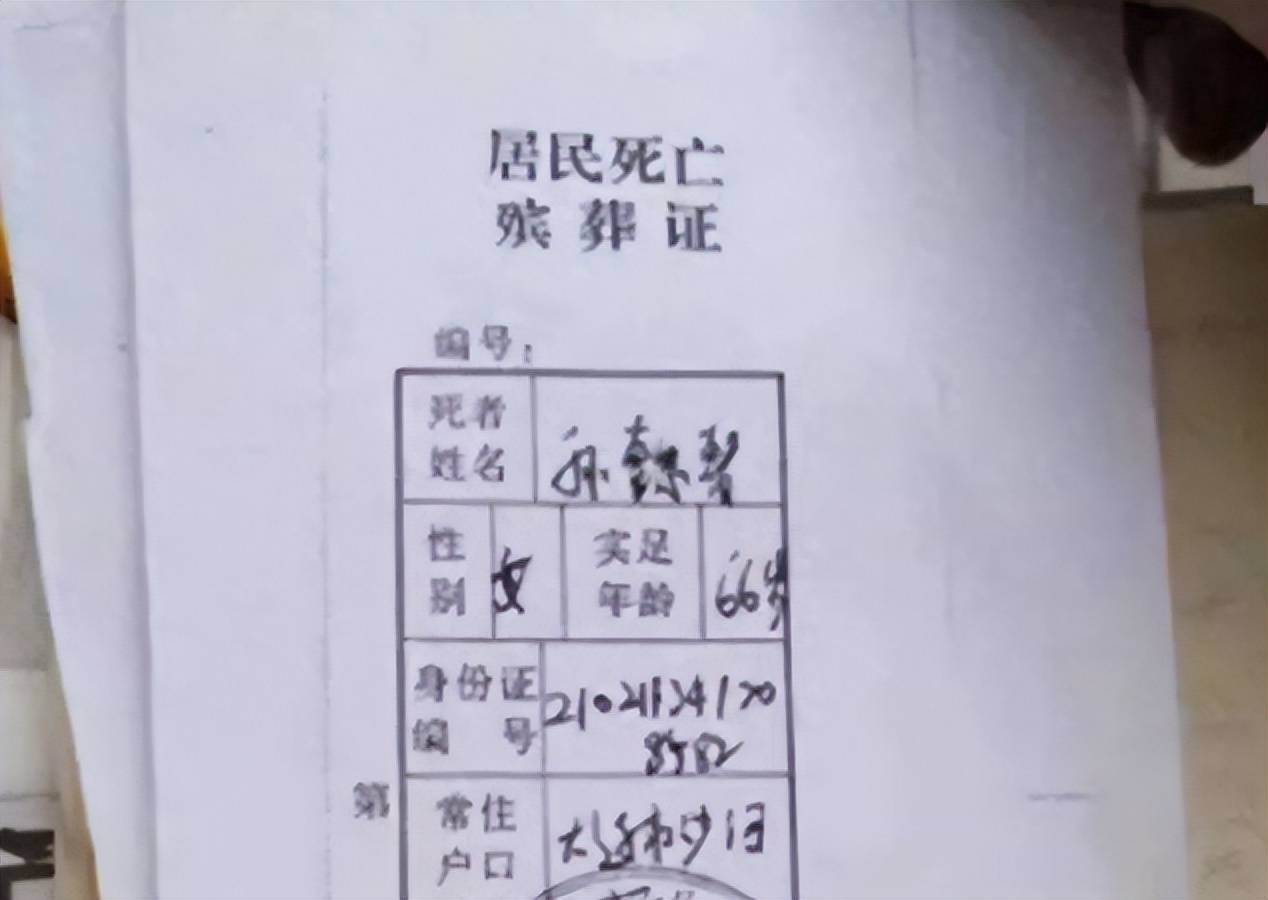 居民死亡
殡葬证
编号：
死者
姓名
孙
性
别
女
实足
年龄
66岁
身份证
编号
8582
第
常住
户口
大连市沙河